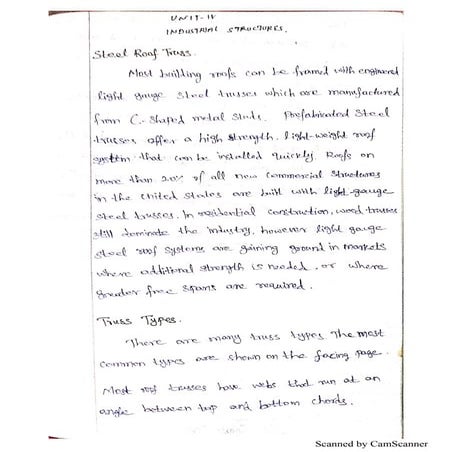 UNIT-IV
INDUSTRIAL STRUCTURES.
Steel Roof Truss.
Most building roofs can be framed with engineered
light gauge steel trusses which are manufactured
from C-shaped metal studs. Prefabricated Steel
trusses offer a high strength, light-weight roof
system that can be installed quickly. Roofs on
more than 20% of all new commercial structures
in the United States are built with light-gauge
steel trusses. In residential construction, wood trusses
still dominate the industry, however light gauge
steel roof systems are gaining ground in markets
where additional strength is needed, or where
greater free spans are required.
Truss Types.
There are many truss types. The most
common types are shown on the facing page.
Most roof trusses have webs that run at an
angle between top and bottom chords.
Scanned by CamScanner